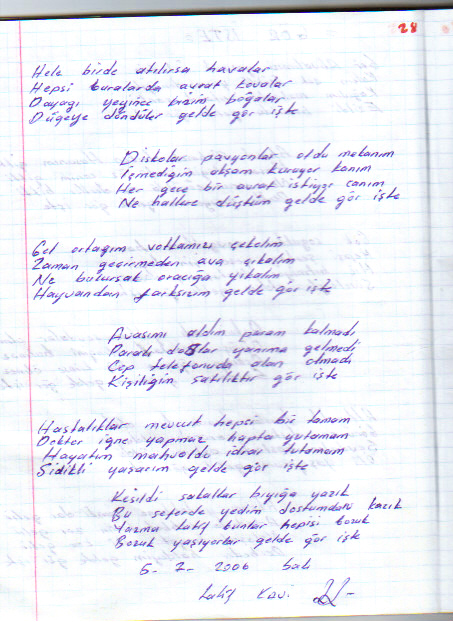 28
Hele birde atılırsa havalar
Hepsi buralarda avrat kovalar
Dayağı yeyince bizim boğalar
Düğeye döndüler gelde gör işte
Diskolar pavyonlar oldu mekanım
İçmediğim akşam kuruyor kanım
Her gece bir avrat istiyor canım
Ne hallere düştüm gelde gör işte
Gel ortağım votkamızı çekelim
Zaman geçirmeden ava çıkalım
Ne bulursak oracığa yıkalım
Hayvandan farksızım gelde gör işte
Avasımı aldım param kalmadı
Paralı dostlar yanıma gelmedi
Cep telefonuda alan olmadı
Kişiliğin satılıktır gör işte
Hastalıklar mevcut hepsi bir tamam
Doktor iğne yapmaz hapta yutamam
Hayatım mahvoldu idrar tutamam
Sidikli yaşarım gelde gör işte
Kesildi sakallar bıyığa yazık
Bu seferde yedim dostumdan kazık
Yazma Latif bunlar hepisi bozuk
Bozuk yaşıyorlar gelde gör işte
5-7-2006 Salı
Latif Kavi